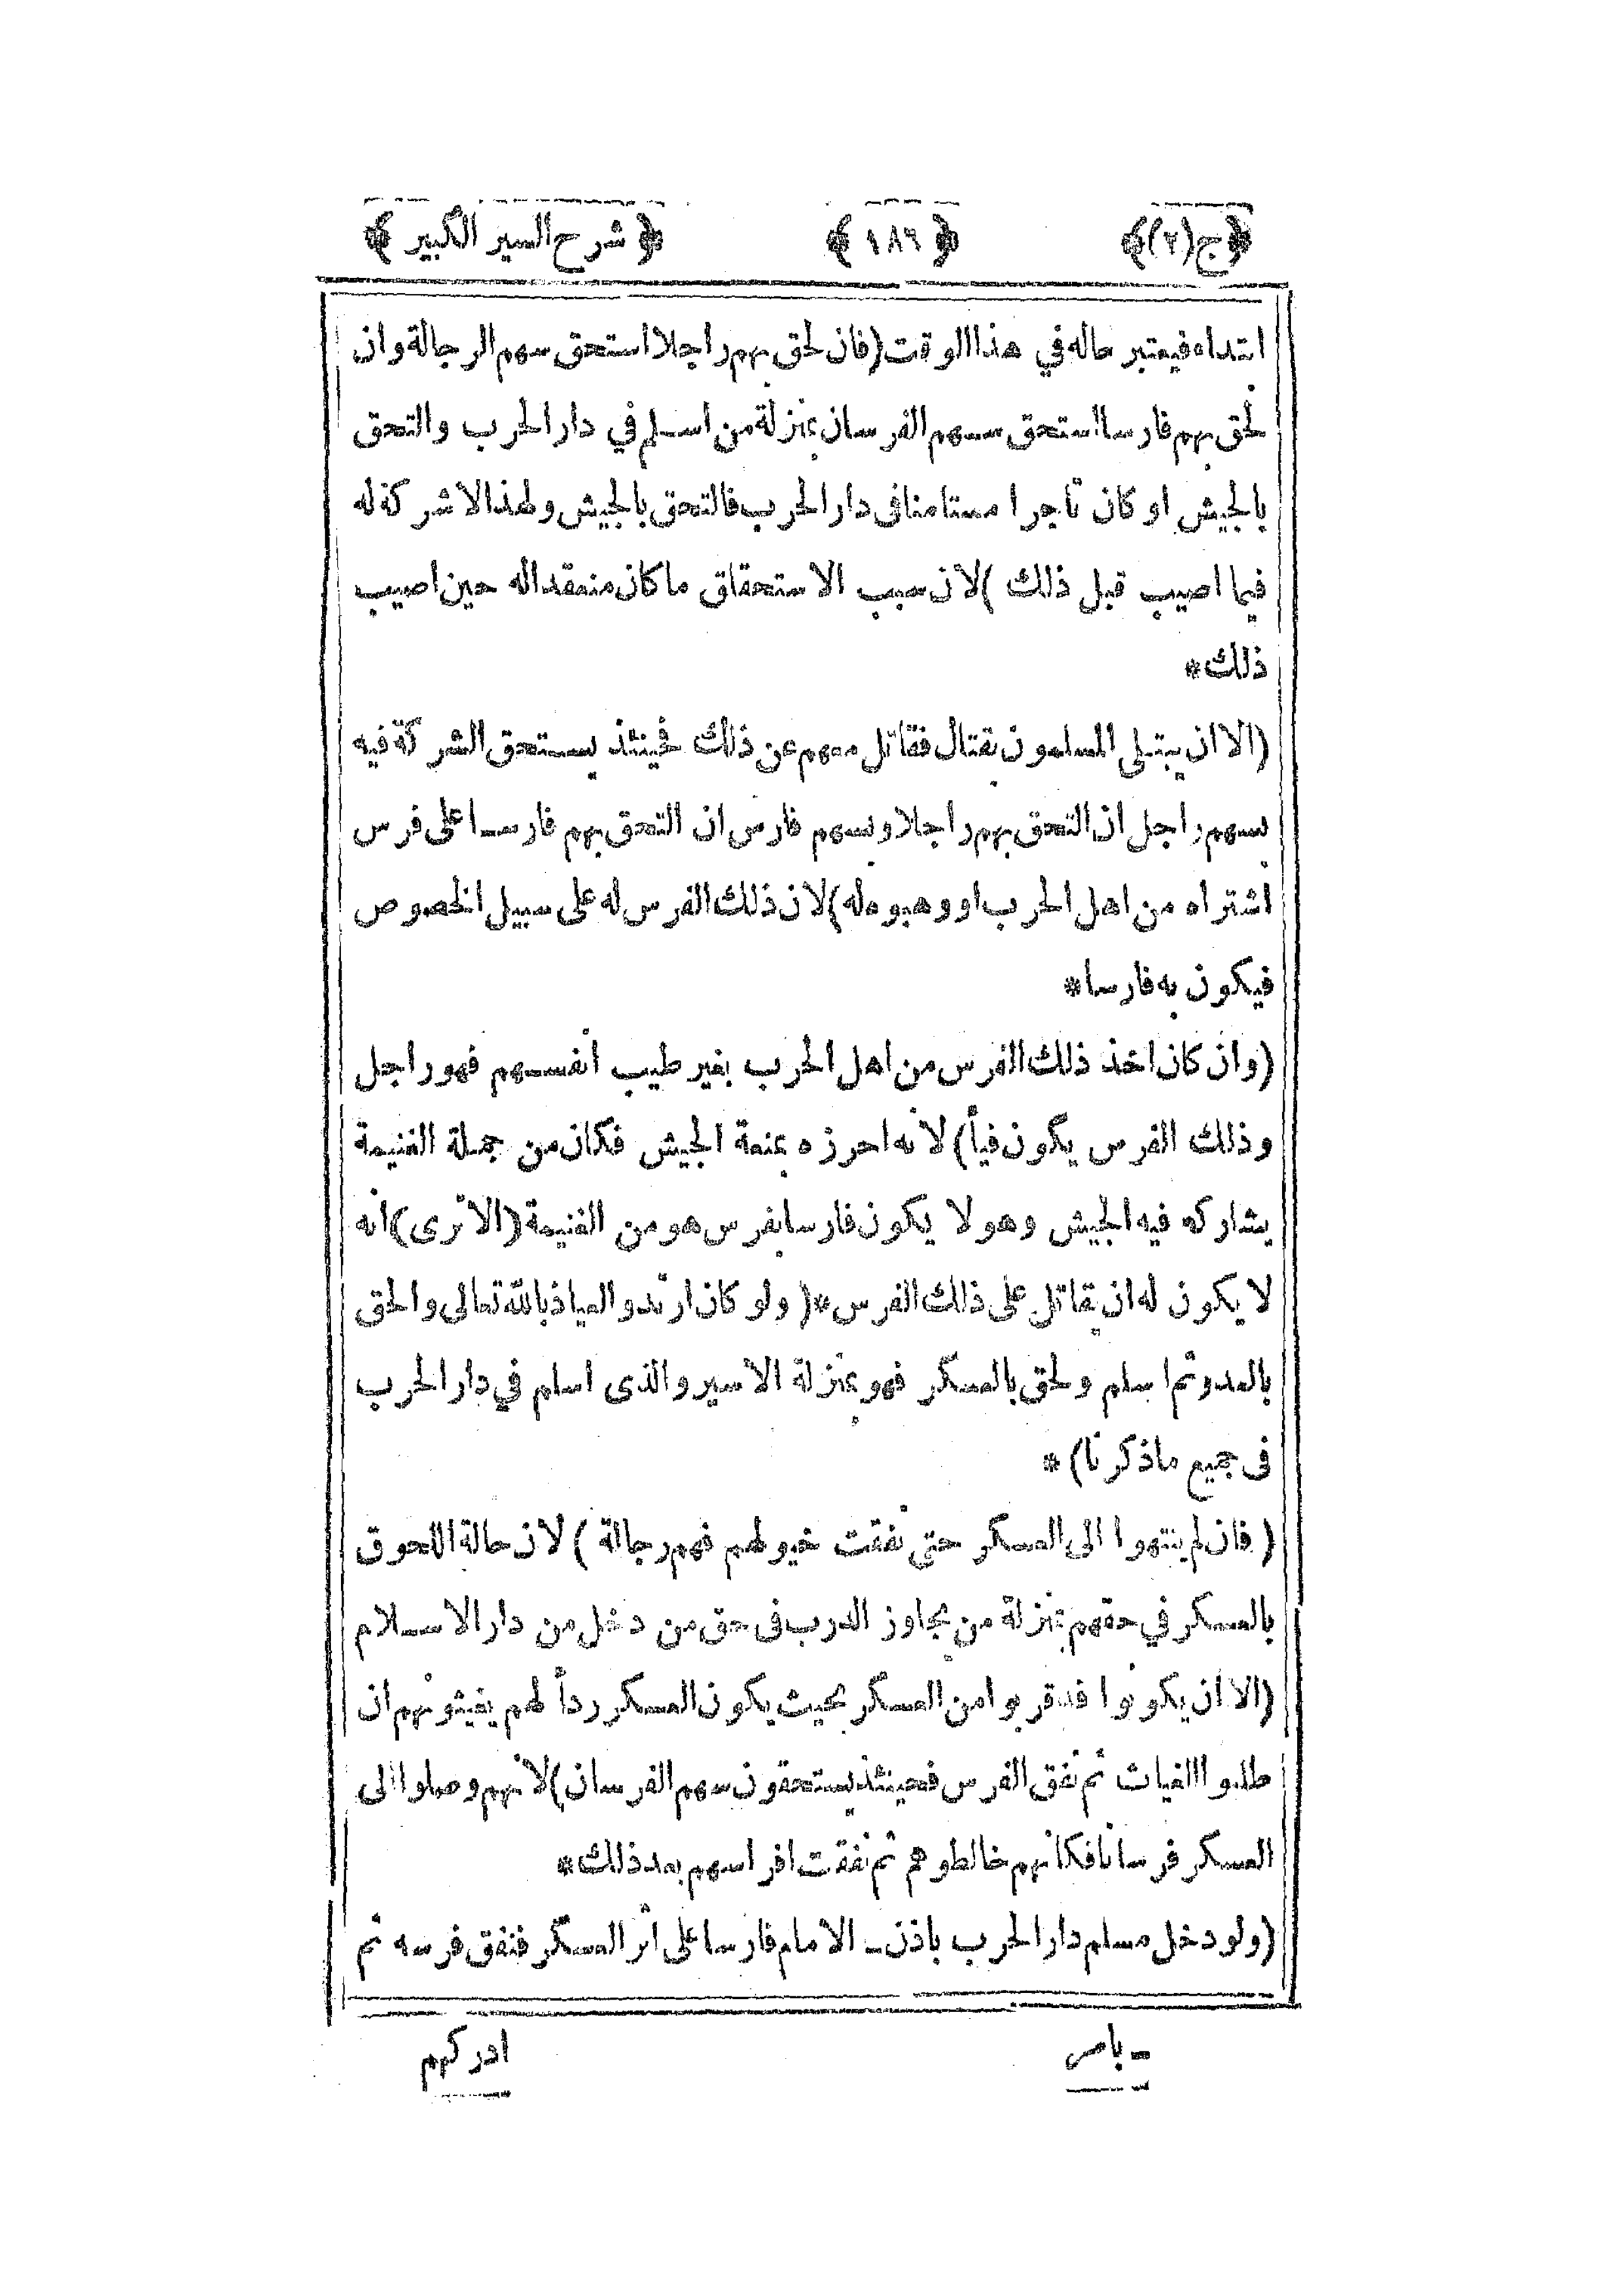 ﴿ج(٢)﴾ ﴿١٨٩﴾ ﴿شرح السير الكبير﴾
ابتداء فيعتبر حاله في هذا الوقت (فان لحق بهم راجلا استحق سهم الرجالة وان
لحق بهم فارسا استحق سهم الفرسان بمنزلة من اسلم في دار الحرب والتحق
بالجيش او كان تاجرا مستامنا فى دار الحرب فالتحق بالجيش ولهذا لا شركة له
فيما اصيب قبل ذلك )لان سبب الاستحقاق ما كان منعقدا له حين اصيب
ذلك*
(الا ان يبتلى المسلمون بقتال فقاتل معهم عن ذلك فحينئذ يستحق الشركة فيه
بسهم راجل ان التحق بهم راجلا وبسهم فارس ان التحق بهم فارسا على فرس
اشتراه من اهل الحرب او وهبوه له)لان ذلك الفرس له على سبيل الخصوص
فيكون به فارسا*
(وان كان اخذ ذلك الفرس من اهل الحرب بغير طيب انفسهم فهو راجل
وذلك الفرس يكون فيأ)لانه احرزه بمنعة الجيش فكان من جملة الغنيمة
يشاركه فيه الجيش وهو لا يكون فارسا بفرس هو من الغنيمة (الا ترى)انه
لا يكون له ان يقاتل على ذلك الفرس*( ولو كان ارتد والعياذ بالله تعالى والحق
بالعدو ثم اسلم ولحق بالعسكر فهو بمنزلة الاسير والذى اسلم في دار الحرب
فى جميع ما ذكرنا) *
( فان لم ينتهوا الى العسكر حتى نفقت خيولهم فهم رجالة )لان حالة اللحوق
بالعسكر في حقهم بمنزلة من يجاوز الدرب فى حق من دخل من دار الاسلام
(الا ان يكونوا قد قربوا من العسكر بحيث يكون العسكر ردأ لهم يغيثونهم ان
طلبوا الغياث ثم نفق الفرس فحينئذ يستحقون سهم الفرسان)لانهم وصلوا الى
العسكر فرسانا فكانهم خالطوهم ثم نفقت افراسهم بعد ذلك*
(ولو دخل مسلم دار الحرب باذن ـ الامام فارسا على اثر العسكر فنفق فرسه ثم
ـ بامر
ادركهم